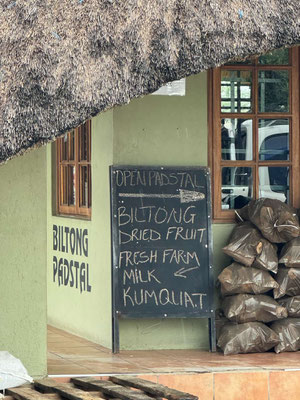 OPEN PADSTAL
BILTONG
DRIED FRUIT
FRESH FARM
MILK
KUMQUAT
BILTONG
PADSTAL